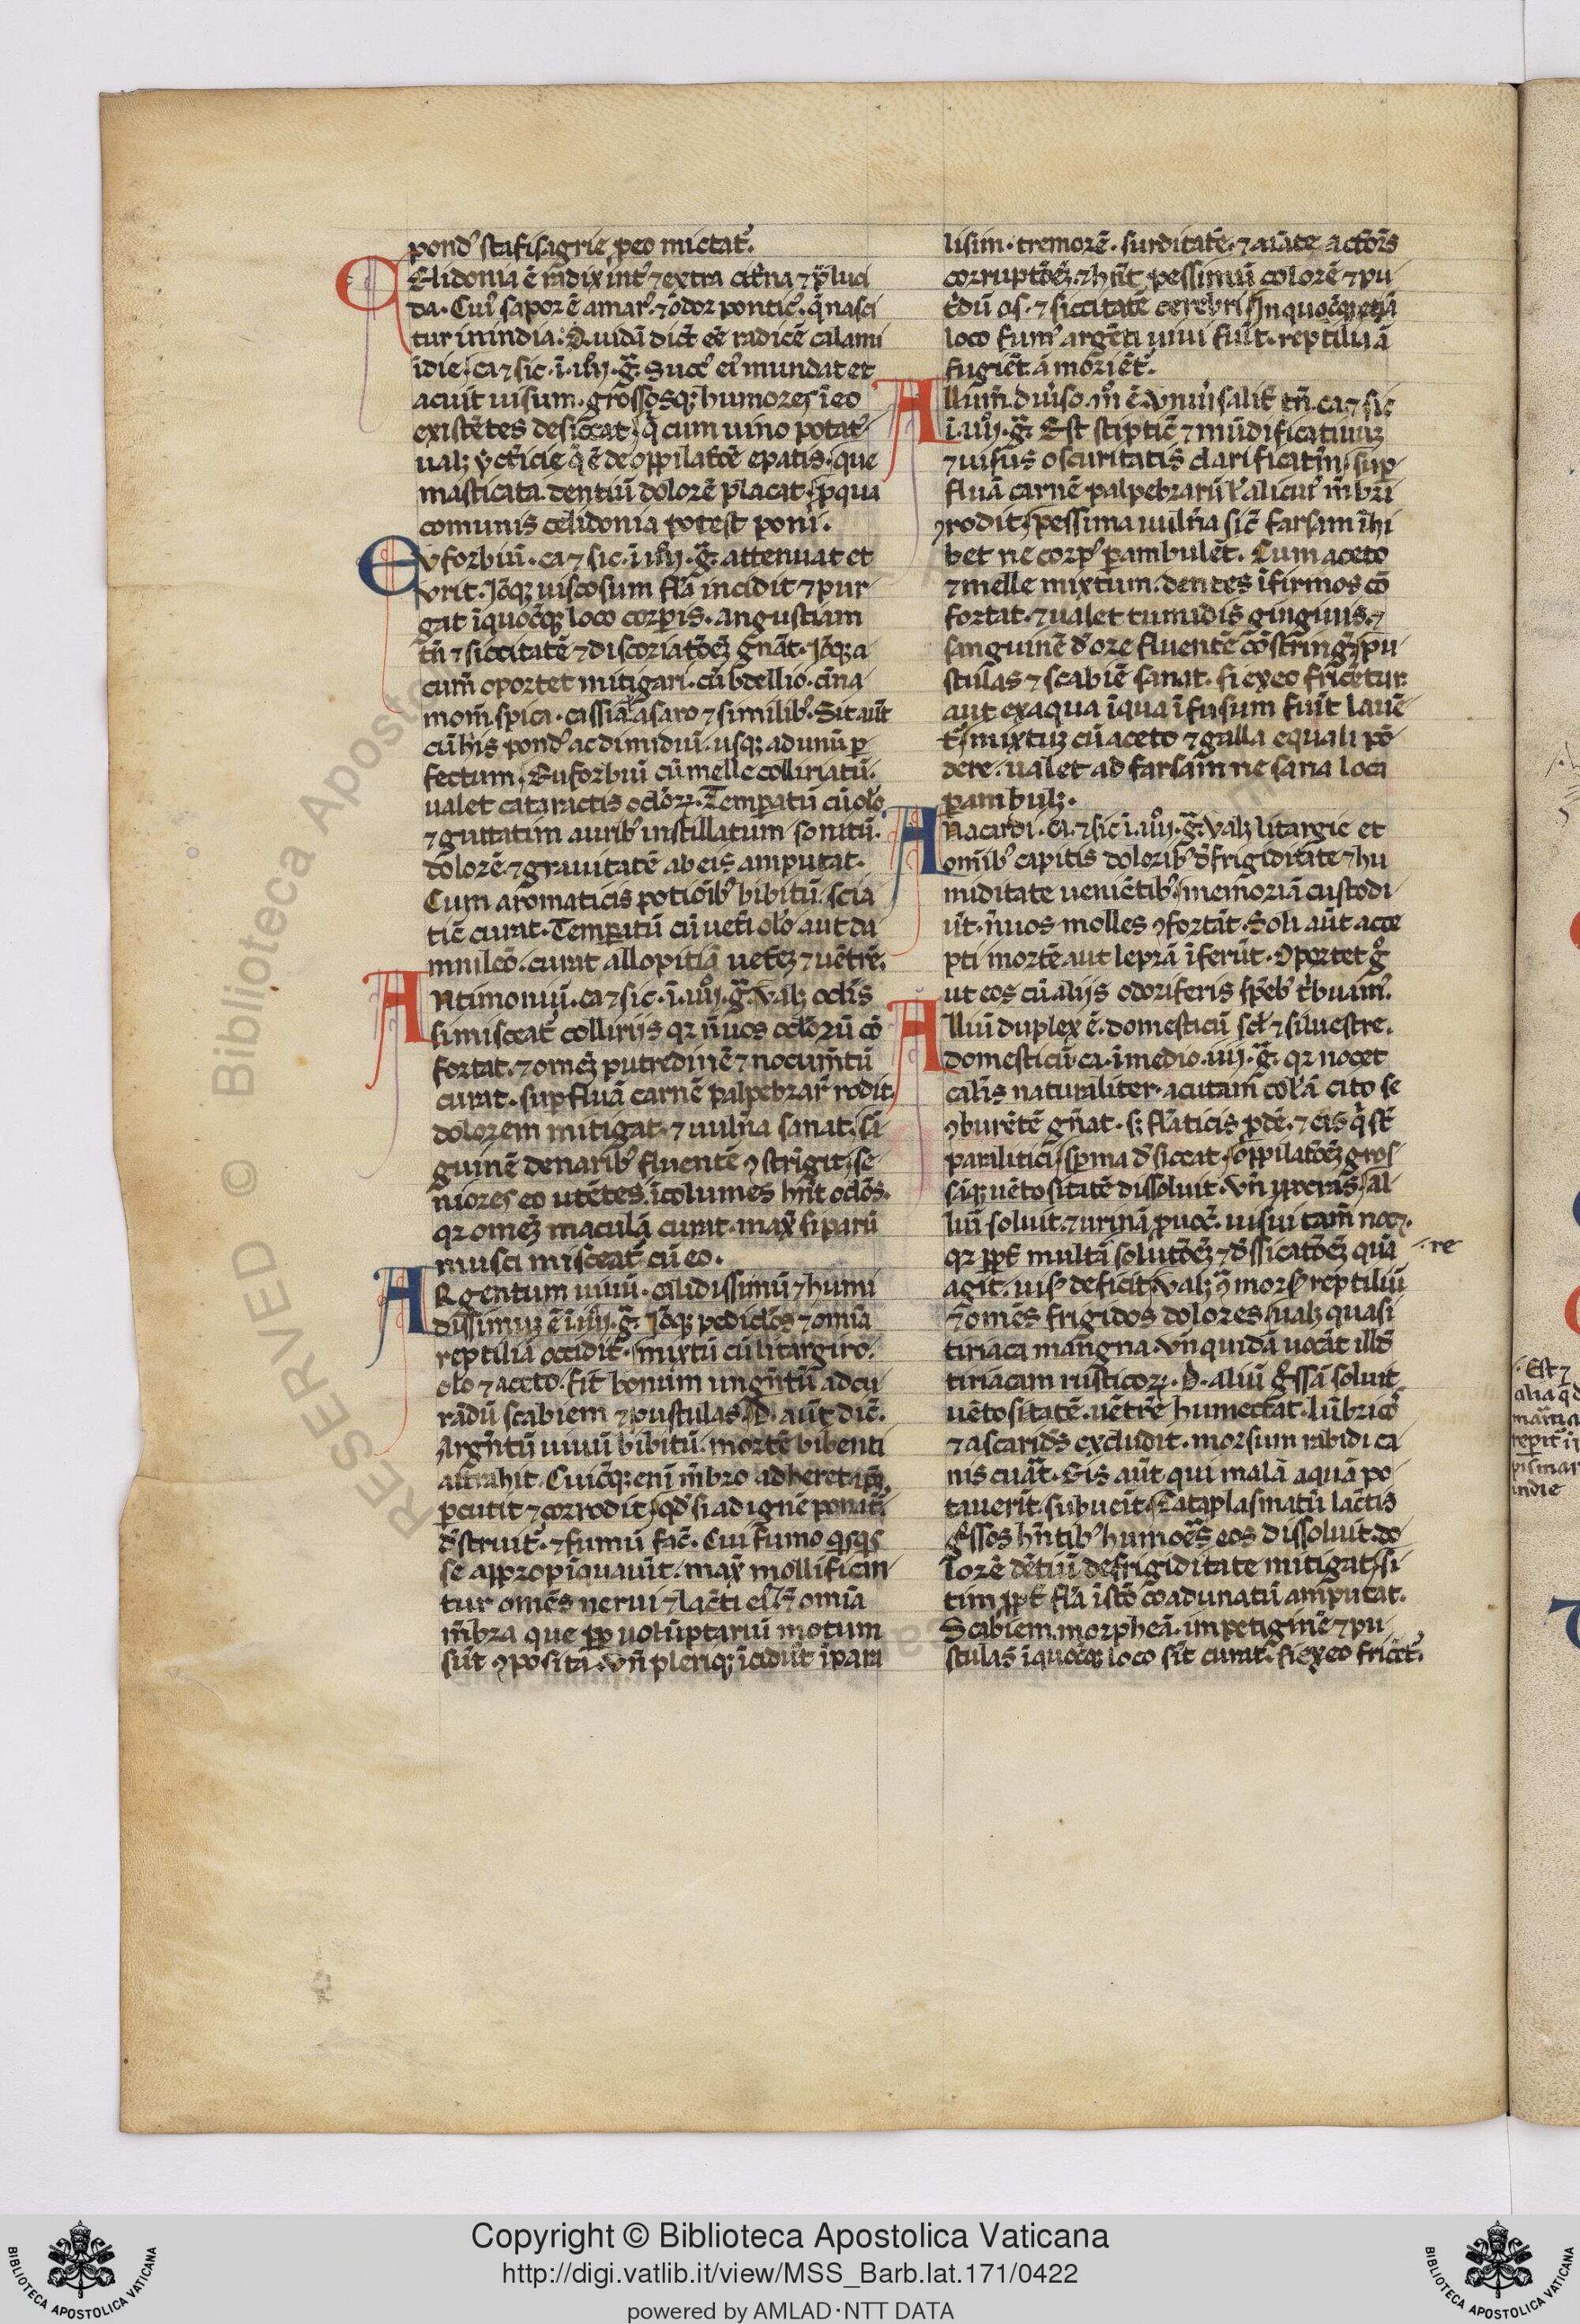 pond᷒ stafisagrie ꝑ eo mictat᷒.
CElidonia ē radix int᷒ ⁊ extra cit͛na ⁊ ꝑluci
da. Cui᷒ sapor ē amar᷒. ⁊ odor pontic᷒. q̄ nasci
tur in india. Quidā dic̄t eē radicē calami
īdie. ca ⁊ sic. ī. iiij. g̃. Succ᷒ ei᷒ mundat et
acuit uisum. grossosq; humores ī eo
existētes desiccat. q̄ cum uino potat᷒
ualꝫ yct͛icie q̄ ē de oppilat̄oē epatis. que
masticata. dentiū dolorē placat. ꝓ qua
comunis celidonia potest poni.
EVforbiū. ca ⁊ sic. ī iiij. g̃. attenuat et
vrit. Ioq; uiscosum fl̄a incidit ⁊ pur
gat ī quocq; loco corꝑis. angustiam
tn̄ ⁊ siccitatē ⁊ discoriat̄oēꝫ gn̄at. Ioq; a
cum̄ oportet mitigari. cū bdellio. cīna
mom̄. spica. cassia. asaro ⁊ similib᷒. Sit aūt
cū his pond᷒ ac dimidiū. usq; ad unū ꝑ
fectum. Euforbiū cū melle colliriatū.
ualet cataractis oclōꝝ. Temꝑatū cū olo᷒
⁊ guttatim aurib᷒ instillatum sonitū.
dolorē ⁊ grauitatē ab eis amputat.
Cum aromaticis potiōib᷒ bibitū. scia
tic̄ curat. Temꝑatū cū uet͛i olo᷒ aut ca
mmileo᷒. curat allopitiā uet͛eꝫ ⁊ uētrē.
ANtimoniū. ca ⁊ sic. ī. iiij. g̃. Valꝫ oclis
si misceat᷒ collirijs qr n͛uos oclōrū cō
fortat. ⁊ omēꝫ putredinē ⁊ nocum̄tū
curat. suꝑfluā carnē palpebraꝝ rodit.
dolorem mitigat. ⁊ uuln͛a sanat. sā
guinē de narib᷒ fluentē ꝯstrīgit. se
niores eo utētes. īcolumes hn̄t oclōs.
qr omēꝫ maculā curat. max̄ si parū
musci misceat᷒ cū eo.
ARgentum uiuū. calidissimū ⁊ humi
dissimuꝫ ē ī iiij. g̃. Ioq; pediclōs ⁊ omīa
reptilia occidit. mixtū cū litargiro.
olo᷒ ⁊ aceto. fit bonum ungn̄tū ad cu
rādū scabiem ⁊ pustulas. D. aūt dic̄.
Argn̄tū uiuū bibitū. mortē bibenti
attrahit. Cuicq; enī mēbro adheret ip̄m
ꝑcutit ⁊ corrodit. qd᷒ si ad ignē ponat᷒
d᷒struit᷒. ⁊ fumū fac̄. Cui fumo qͥsqͥs
se appropīquau͛it. max̄ mollifican
tur omēs nerui ⁊ lac͛ti ei᷒. ⁊ omīa
mēbra que ꝓp uolūptariū motum
sūt ꝯposita. Vn̄ pleriq; īcidūt ī para
lisim. tremorē. surditatē.
corrupt̄oēꝫ. ⁊ hn̄t pessimū colorē ⁊ pu
t͛dū os. ⁊ siccitatē cerebri. In quocq; etiā
loco fum᷒ argēti uiui fu͛it. reptilia ā
fugiēt. ā moriēt᷒.
ALlium̄. diu͛so. m̊ ē. Vniu͛salit͛ tn̄. ca ⁊ sic
ī. iiij. g̃. Est stiptic̄ ⁊ mūdificatiuuꝫ
⁊ uisus oscuritatis clarificatm̄. suꝑ
fluā carnē palpebraꝝ l᷒ alicui᷒ mēbri
ꝯrodit. pessima uuln͛a sic̄ farsam īhi
bet ne corp᷒ ꝑambulēt. Cum aceto
⁊ melle mixtum. dentes īfirmos cō
fortat. ⁊ ualet tumidis gingiuis. ⁊
sanguinē d᷒ ore fluentē cōstringit. pu
stulas ⁊ scabiē sanat. si ex eo fricētur.
aut ex aqua ī qua īfusum fu͛it lauē
t᷒. mixtuꝫ cū aceto ⁊ galla equali pō
dere. ualet ad farsam̄ ne sana loca
ꝑambulꝫ.
ANacardi. ca. ⁊ sic ī. iiij. g̃. Valꝫ litargie et
omīb᷒ capitis dolorib᷒ d᷒ frigiditate ⁊ hu
miditate ueniētib᷒. memoriā custodi
ūt. n͛uos molles ꝯfortāt. Soli aūt acce
pti mortē aut leprā īferūt. Oportet g̊
ut eos cū alijs odoriferis sp̄eb᷒ t͛buam᷒.
ALliū duplex ē. domesticū scl᷒ ⁊ siluestre.
domesticū. ca. ī medio. iiij. g̃. qr nocet
calis naturaliter. acutam̄ col͛ā cito se
ꝯburētē gn̄at. sꝫ fl̄aticis ꝓdē. ⁊ eis qͥ st̄
paralitici. sꝑma d᷒siccat. oppilat̄oēꝫ gros
sāq; uētositatē dissoluit. Vn̄ ypocras. al
liū soluit. ⁊ urinā ꝓuoc᷒. uisui tam̄ noc⁊. .re
qr ꝓpt͛ multā solut̄oēꝫ ⁊ d᷒ssicat̄oēꝫ quā
agit. uis᷒ deficit. Valꝫ ꝯ mors᷒ reptiliū
⁊ omēs frigidos dolores. ualꝫ quasi
tiriaca mangna. Vn̄ quidā uocāt illd᷒
tiriacam rusticoꝝ. D. aliū g͛ssā soluit
uētositatē. uētrē humectat. lūbrico᷒
⁊ ascarid᷒s excludit. morsum rabidi ca
nis curat. Eis aūt qui malā aquā po
tauerīt. subueīt. Cataplasmatū lac͛tis
g͛ssos hn̄tib᷒ humores eos dissoluit. do
lorē dētiū de frigiditate mitigat. si
tim ꝓpt͛ fl̄a ī st̊o coadunatū amputat.
Scabiem. morpheā. impetiginē ⁊ pu
stulas ī quocq; loco sīt curat. si ex eo fricēt᷒.
. Est ⁊
alia qd
indie
RESERVED © Biblioteca Apost
Copyright © Biblioteca Apostolica Vaticana
http://digi.vatlib.it/view/MSS_Barb.lat.171/0422
powered by AMLAD·NTT DATA
BIBLIOTECA APOSTOLICA VATICANA
BIBLIOTECA APOSTOLICA VATICANA